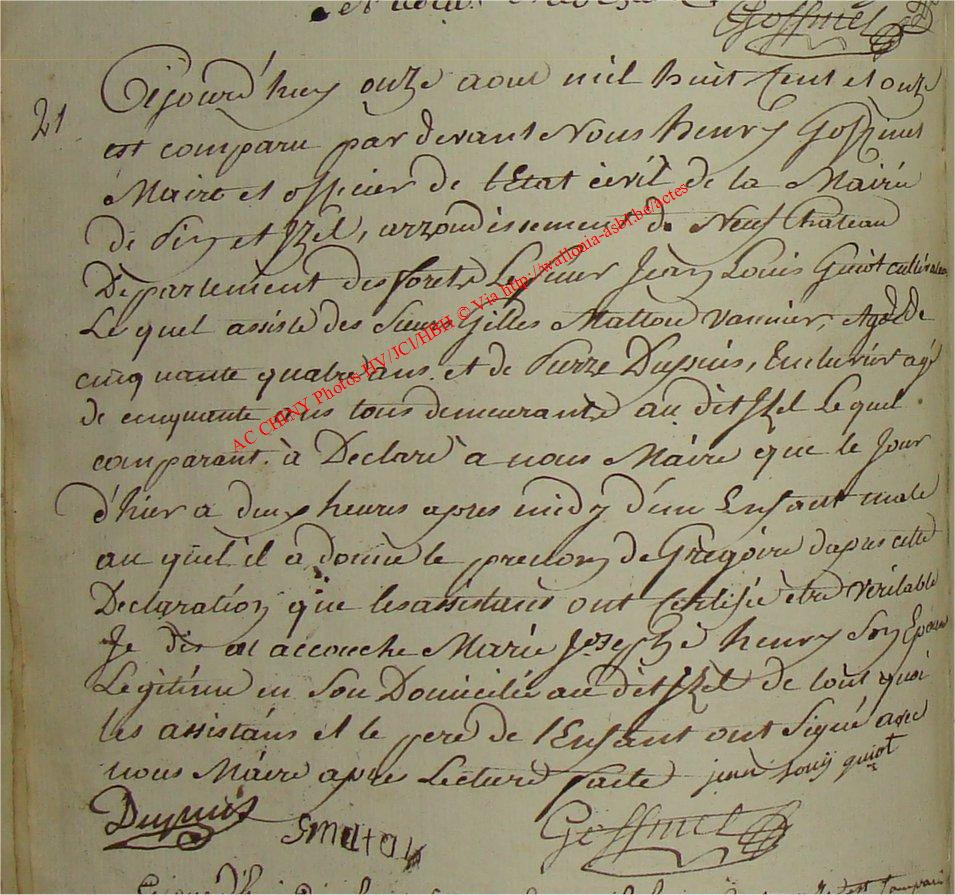 Goffinet
21
Cejourd'huy onze aout mil huit Cent et onze
est comparu par devant Nous henry Goffinet
Maire et officier de l'Etat civil de la Mairie
de Pin et Izel, arrondissement de Neuf Chateau
Departement des forets Le sieur Jean Louis Guiot cultivateur
Le quel assisté des Sieurs Gilles Mattou vannier, Agé de
cinquante quatre ans et de Pierre Dupuis, agé
de cinquante ans tous demeurants au dit Izel Le quel
comparant à Declaré a nous Maire que le Jour
d'hier a deux heures apres midy d'un Enfant male
au quel il a donné le prenom de Gregoire dapres cette
Declaration que les assistans ont Certifié être veritable
Je dis est accouche Marie Josephe henry Son Epouse
Légitime en Son Domicile au dit Izel de tout quoi
les assistans et le pere de l'Enfant ont Signé avec
nous Maire apres Lecture faite jean louij guiot
Dupuis Gmatou Goffinet
AC CHINY Photos HV/JCl/HBH © Via http://wallonia-asbl.be/actes